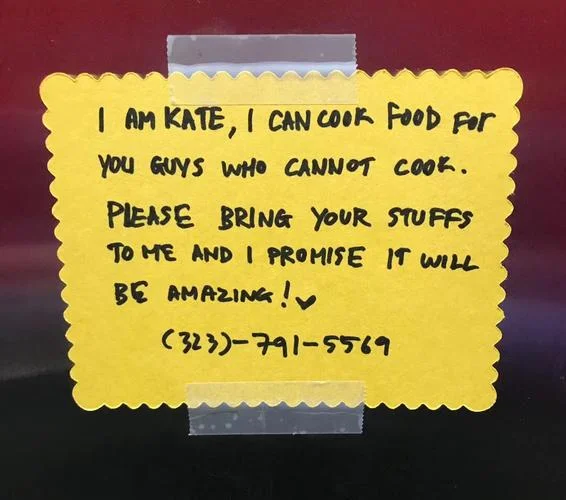 I AM KATE, I CAN COOK FOOD FOR
YOU GUYS WHO CANNOT COOK.
PLEASE BRING YOUR STUFFS
TO ME AND I PROMISE IT WILL
BE AMAZING!
(323)-791-5569